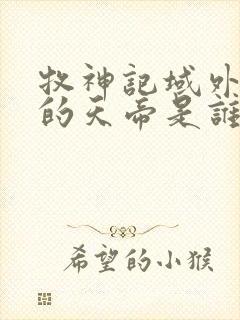 牧神記域外
的天帝是誰
希望的小猴